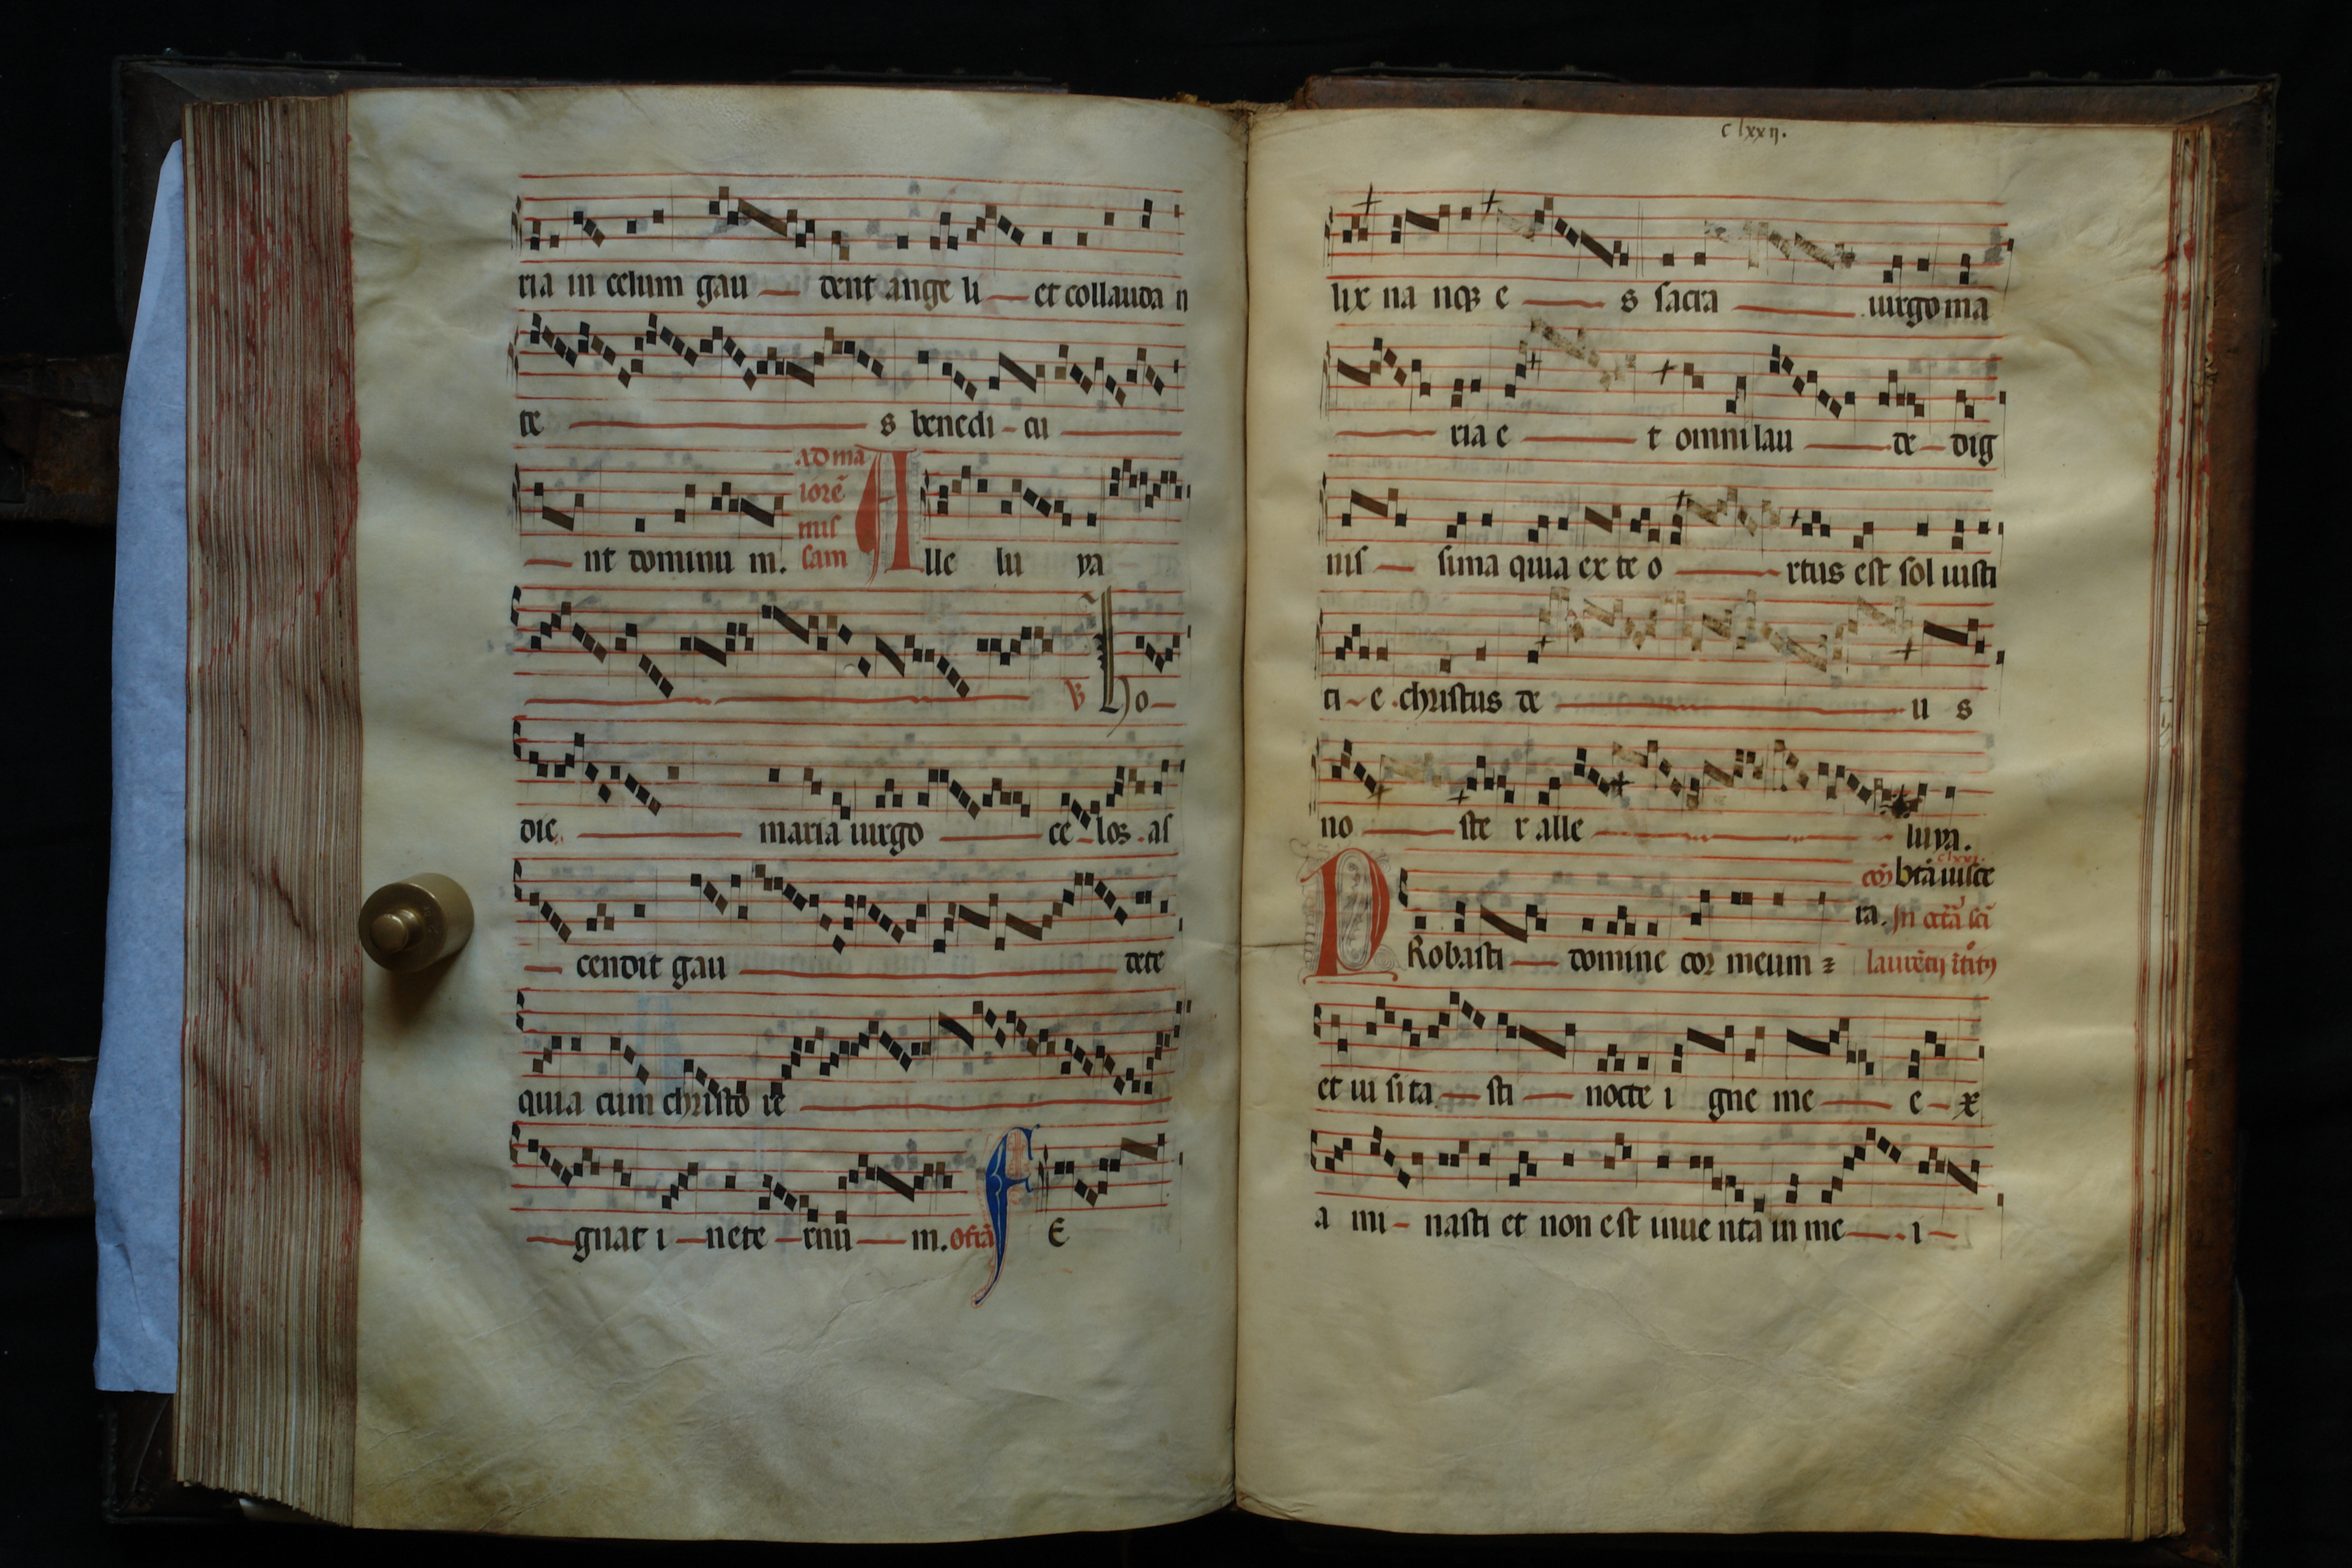 ria in celum gau — dent ange li — et collauda n
te — s benedi - cu —
— nt dominu m. ad ma
iorē
mis
sam Alle lu ya
— ℣ Ho -
die — maria uirgo — ce - los . as
— cendit gau — dete
quia cum christo re —
— gnat i — nete — rnū — m. ofrā FE
clxxıı.
lix na nqꝫ e — s sacra — uirgo ma
— ria e — t omni lau — de — dig
nis — sima quia ex te o — rtus est sol iusti
ti - e . christus de — u s
no — ste r alle — luya.
clxxı.
cōı btā uisce
ra. In octā sci
PRobasti — domine cor meum ⁊ laurētij ītꝰ
et ui sita — sti — nocte i gne me — e - x
a mi - nasti et non est inue nta in me — . i -